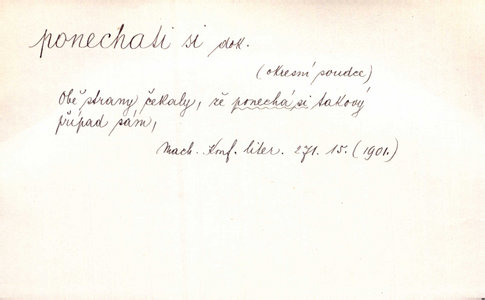 ponechati si dok.
(okresní soudce)
Obě strany čekaly, že ponechá si takový
případ sám,
Mach. Konf. liter. 271. 15. (1901.)